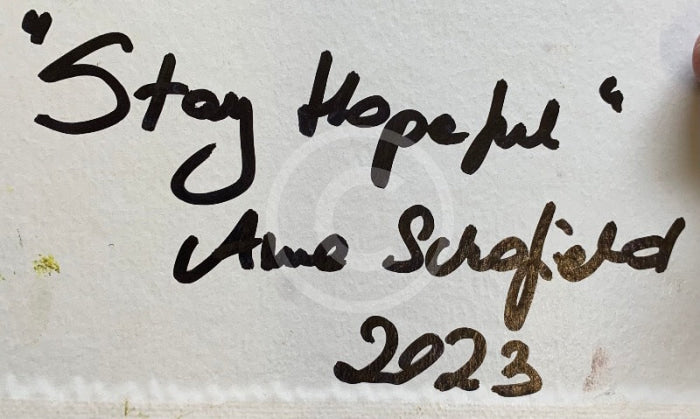 "Stay Hopeful"
Anna Schofield
2023